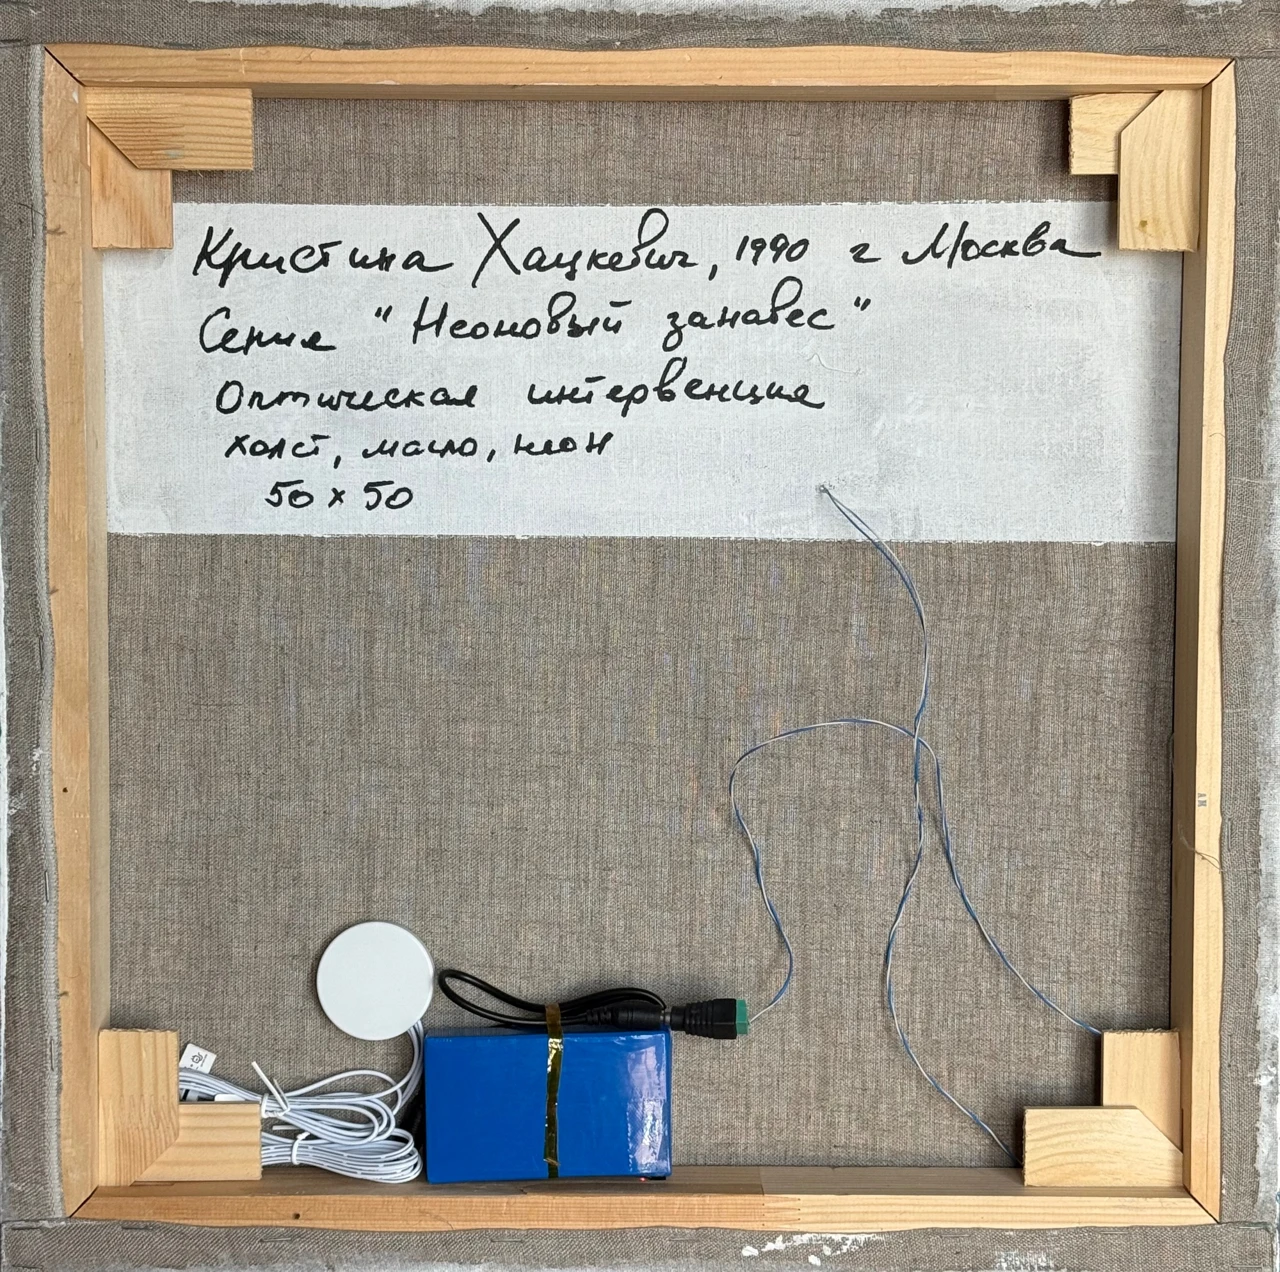 Кристина Хацкевич, 1990 г Москва
Серия "Неоновый занавес"
Оптическая интервенция
холст, масло, неон
50 x 50